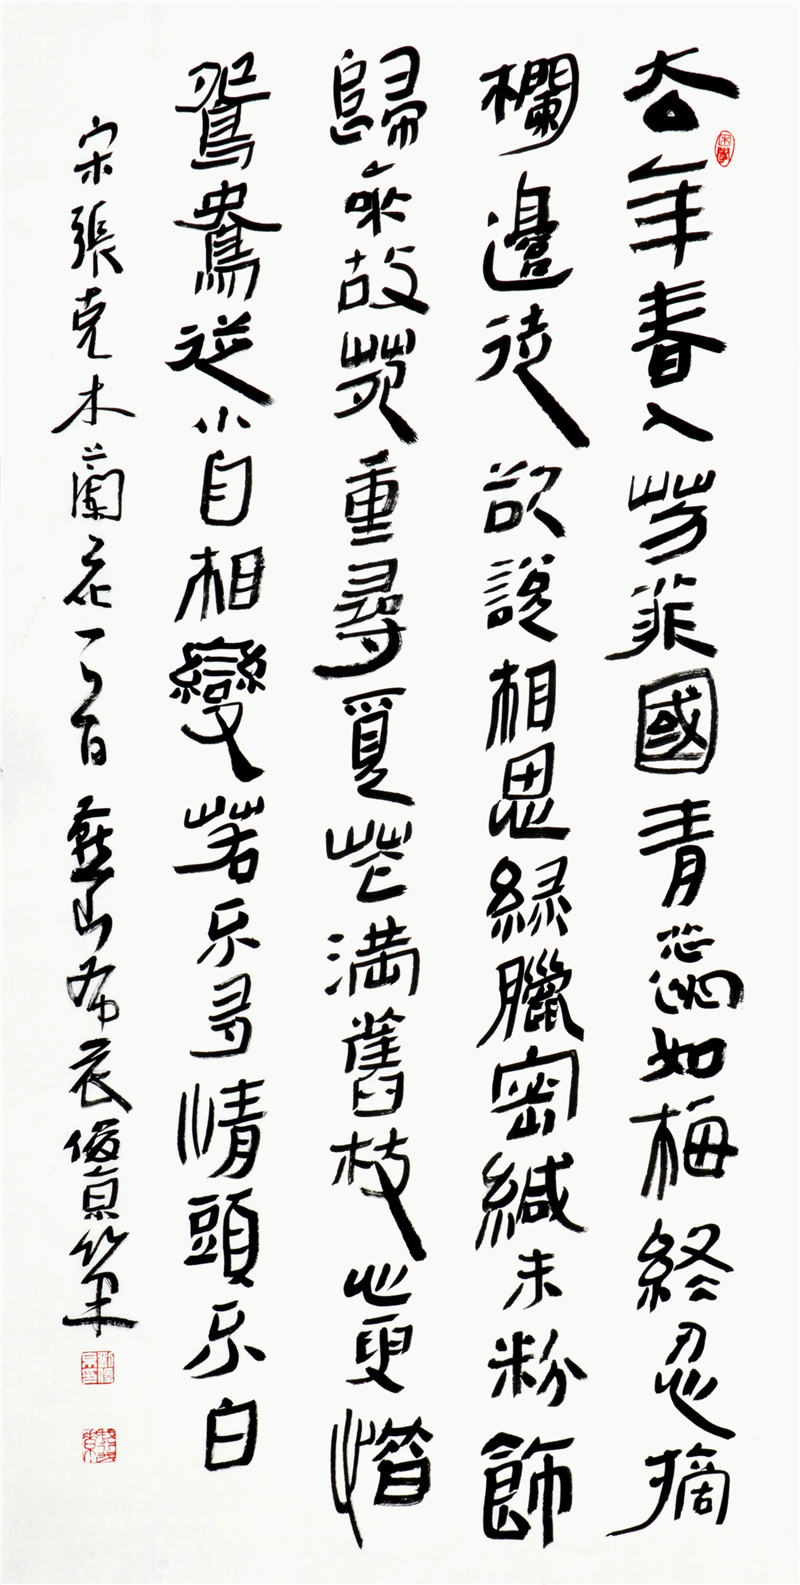 去年春入芳菲國青蕊如梅終忍摘
欄邊徒欲說相思綠臘密緘朱粉飾
歸來故苑重尋覓花滿舊枝心更惜
鴛鴦從小自相變若不寻情頭不白
宋張克木蘭花一首燕山布衣俊京筆